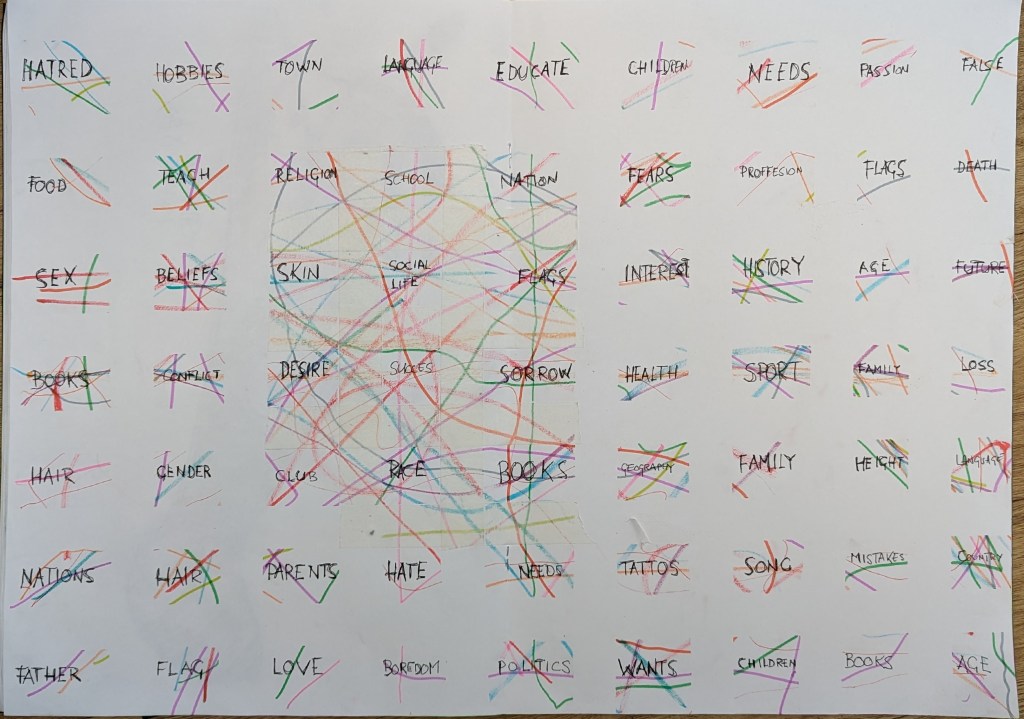 HATRED HOBBIES TOWN LANGUAGE EDUCATE CHILDREN NEEDS PASSION FALSE
FOOD TEACH RELIGION SCHOOL NATION FEARS PROFFESION FLAGS DEATH
SEX BELIEFS SKIN SOCIAL LIFE FLAGS INTEREST HISTORY AGE FUTURE
BOOKS CONFLICT DESIRE SUCCES SORROW HEALTH SPORT FAMILY LOSS
HAIR GENDER CLUB RACE BOOKS GEOGRAPHY FAMILY HEIGHT LANGUAGE
NATIONS HAIR PARENTS HATE NEEDS TATTOS SONG MISTAKES COUNTRY
FATHER FLAG LOVE BOREDOM POLITICS WANTS CHILDREN BOOKS AGE